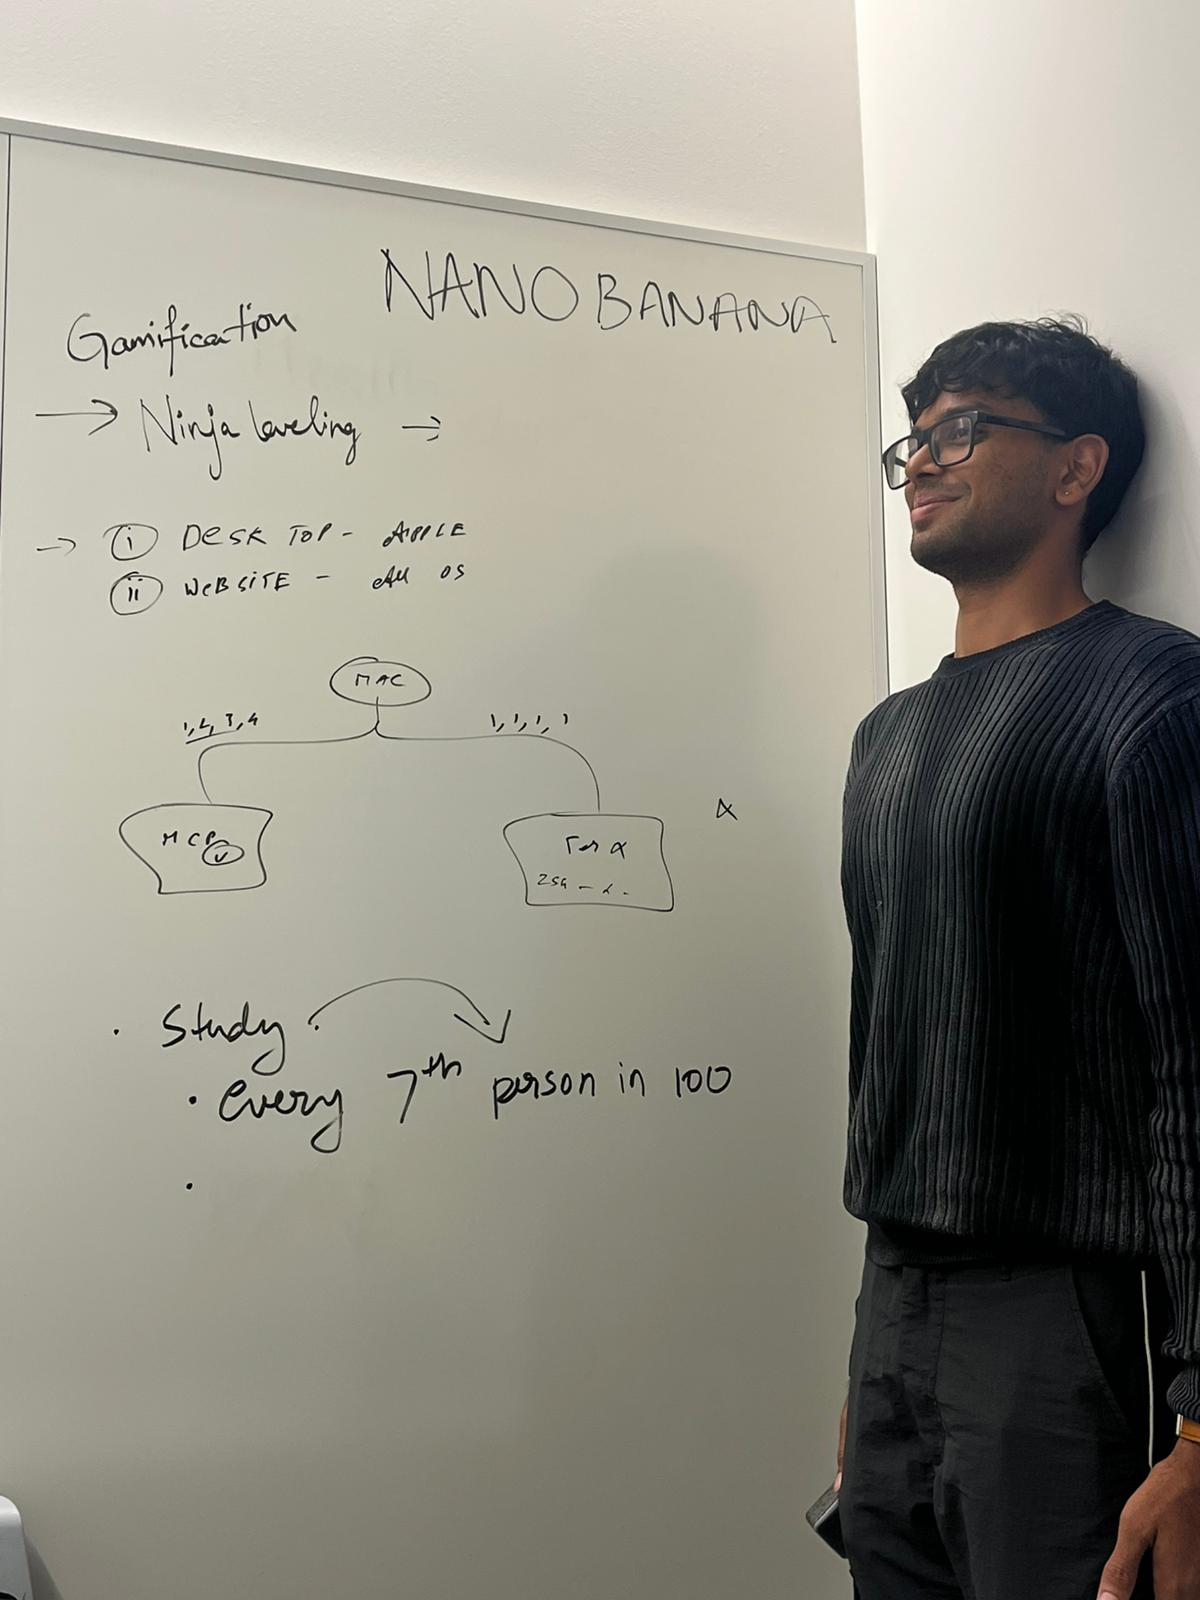 NANO BANANA
Gamification
→ Ninja leveling →
→ (i) DESKTOP - APPLE
(ii) WEBSITE - All OS
MAC
1, 2, 3, 4
1, 1, 1, 1
MCP
α
• Study
• every 7th person in 100
•